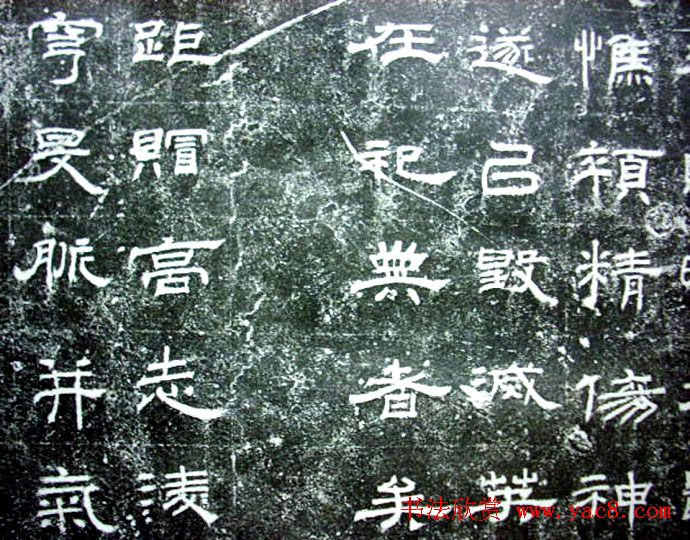 憔顇精傷神
遂㠯毀滅英
在祀典者矣
距賵高志淩
穹旻脈并氣
书法欣赏 www.yac8.com